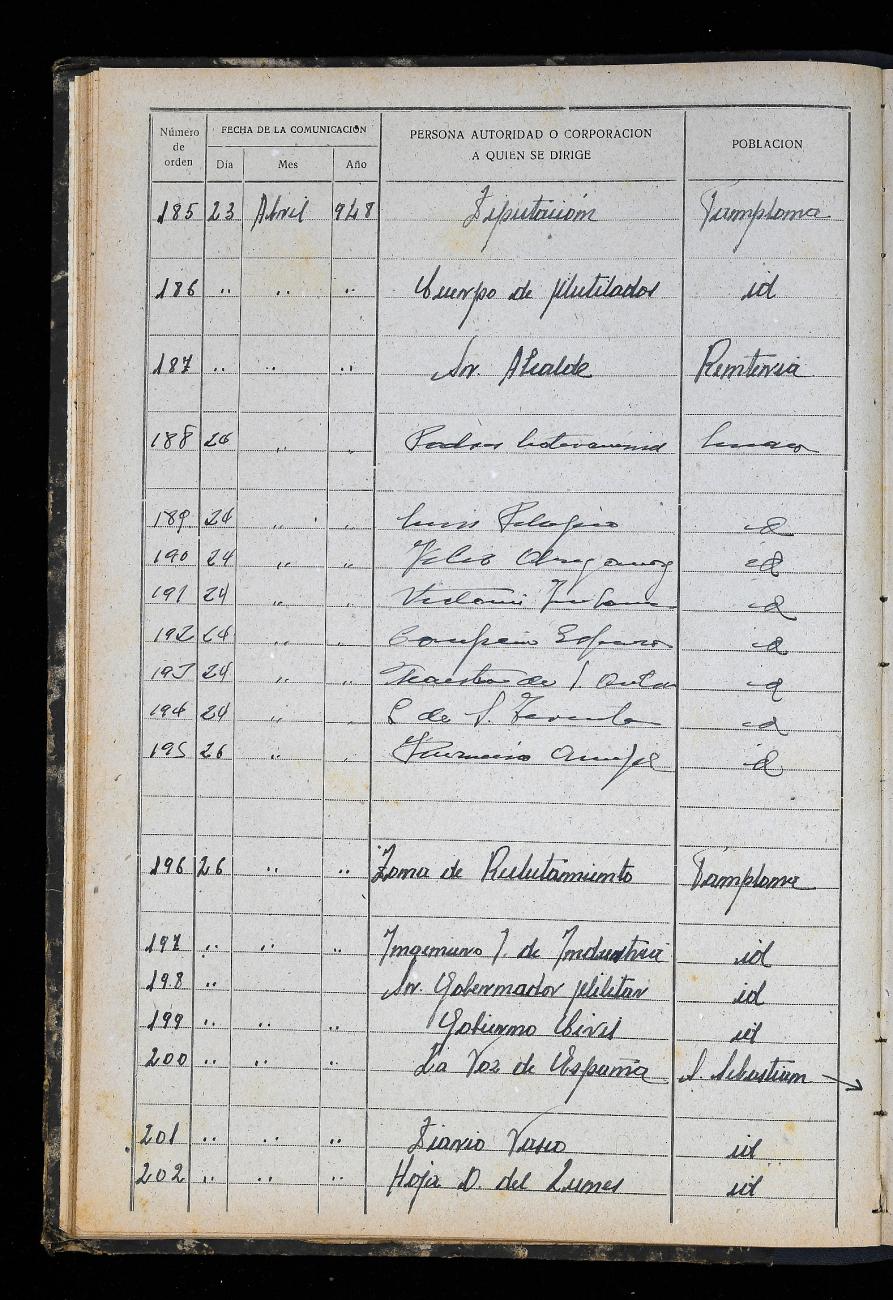 Número de orden FECHA DE LA COMUNICACIÓN PERSONA AUTORIDAD O CORPORACION A QUIEN SE DIRIGE POBLACION
Día Mes Año
185 23 Abril 948 Diputación Pamplona
186 .. .. .. Cuerpo de Mutilados id
187 .. .. .. Sr. Alcalde Renteria
188 24 .. .. Padres
189 24 .. .. Luis id
190 24 .. .. Felix id
191 24 .. .. id
192 24 .. .. id
193 24 .. .. Maestro de id
194 24 .. .. id
195 26 .. .. id
196 26 .. .. Zona de Reclutamiento Pamplona
197 .. .. .. Ingeniero J. de Industria id
198 .. Sr. Gobernador Militar id
199 .. .. .. Gobierno Civil id
200 .. .. .. La Voz de España S. Sebastian
201 .. .. .. Diario Vasco id
202 .. .. .. Hoja D. del Lunes id